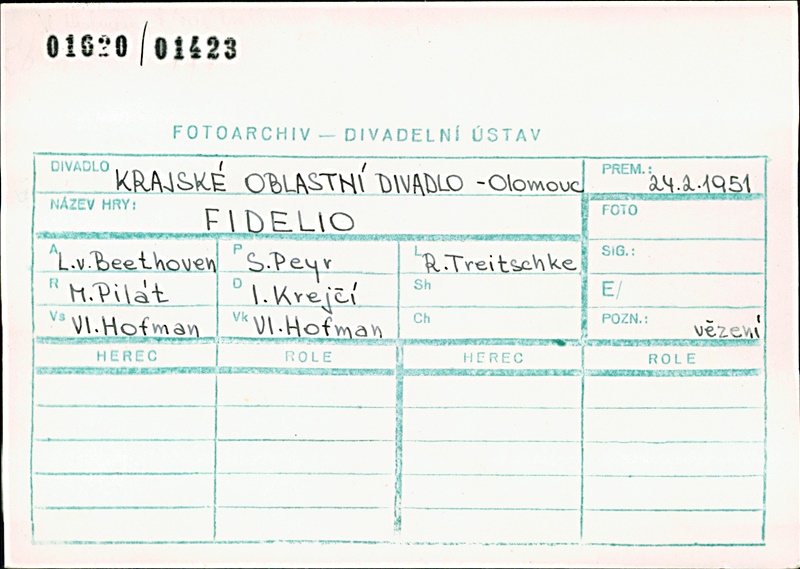 01620/01423
FOTOARCHIV — DIVADELNÍ ÚSTAV
DIVADLO KRAJSKÉ OBLASTNÍ DIVADLO - Olomouc PREM.: 24.2.1951
NÁZEV HRY: FIDELIO FOTO
A L.v.Beethoven P S.Peyr L R.Treitschke SIG.:
R M.Pilát D I.Krejčí Sh E/
Vs Vl.Hofman Vk Vl.Hofman Ch POZN.: vězení
HEREC ROLE HEREC ROLE